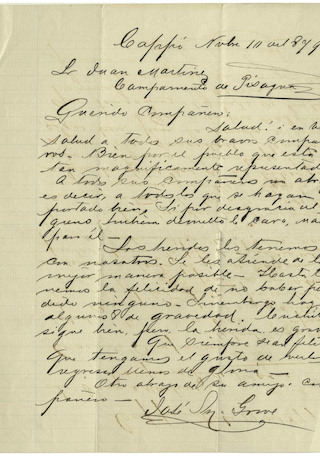 Cappó Nvbre 10 del 879
Sr Juan Martine
Campamento de Pisagua
Querido Compañero:
Salud! i en
salud a todos sus bravos compa
ros. Bien por el pueblo que está
tan magníficamente representa
A todos sus compañeros un abr
es decir, a todos los que se hayan
portado bien. Si por desgracia al
guno hubiera
para él
Los heridos los tenemos
con nosotros. Se les atiende de l
mejor manera posible - Hasta
nemos la felicidad de no haber pe
dido ninguno. Sinembargo hay
algunos de gravedad.
sigue bien, pero la herida es gra
Que siempre sean feli
Que tengamos el gusto de verle
regresar llenos de gloria -
Otro abrazo de su amigo i com
pañero -
José